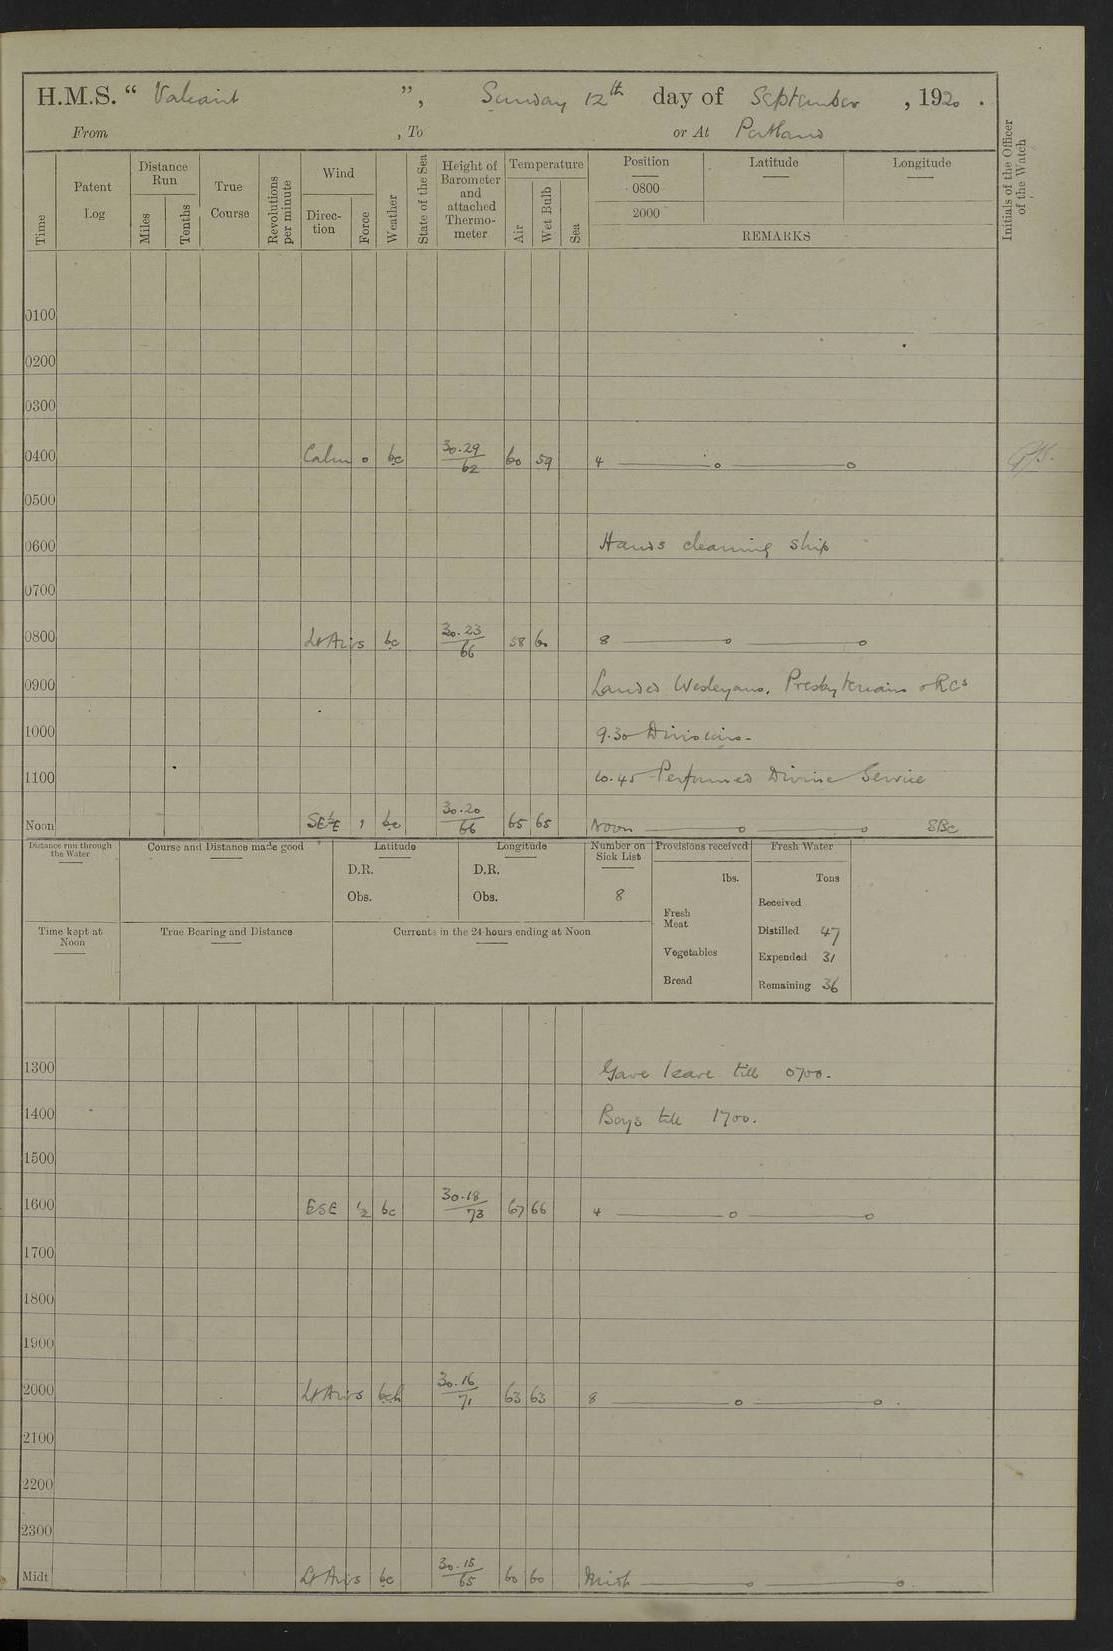 H.M.S. “ Valiant ”, Sunday 12th day of September , 1920 .
From , To or At Portland
Time
Patent Log
Distance Run
Miles
Tenths
True Course
Revolutions per minute
Wind
Direction
Force
Weather
State of the Sea
Height of Barometer and attached Thermometer
Temperature
Air
Wet Bulb
Sea
Position
0800
2000
Latitude
Longitude
REMARKS
Initials of the Officer of the Watch
0100
0200
0300
0400 Calm 0 bc 30.29 62 60 59 4
0500
0600 Hands cleaning ship
0700
0800 Lt Airs bc 30.23 66 58 60 8
0900 Landed Wesleyans, Presbyterians & RCs
1000 9.30 Divisions.
1100 10.45 Performed Divine Service
Noon SE½E 1 bc 30.20 66 65 65 Noon
Distance run through the Water
Course and Distance made good
Latitude
D.R.
Obs.
Longitude
D.R.
Obs.
Number on Sick List
8
Provisions received
lbs.
Fresh Meat
Vegetables
Bread
Fresh Water
Tons
Received
Distilled 47
Expended 31
Remaining 36
Time kept at Noon
True Bearing and Distance
Currents in the 24 hours ending at Noon
1300 Gave leave till 0700.
1400 Boys till 1700.
1500
1600 ESE ½ bc 30.18 73 67 66 4
1700
1800
1900
2000 Lt Airs bch 30.16 71 63 63 8
2100
2200
2300
Midt Lt Airs bc 30.15 65 60 60 Midt